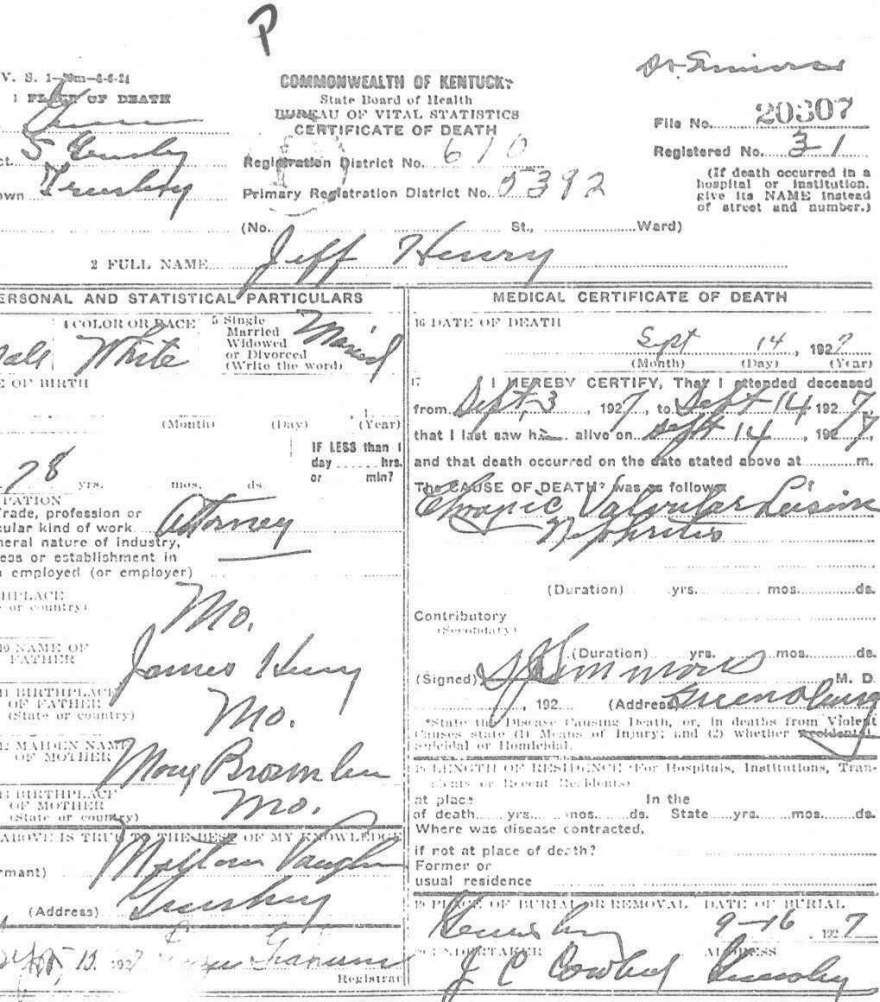 P
V. S. 1-
1 PLACE OF DEATH
COMMONWEALTH OF KENTUCKY
State Board of Health
BUREAU OF VITAL STATISTICS
CERTIFICATE OF DEATH
File No. 20307
Registered No. 31
(If death occurred in a
hospital or institution,
give its NAME instead
of street and number.)
Registration District No. 610
Primary Registration District No. 5392
(No. St., Ward)
2 FULL NAME Jeff Henry
ERSONAL AND STATISTICAL PARTICULARS
4 COLOR OR RACE
White
5 Single
Married
Widowed
or Divorced
(Write the word)
Married
E OF BIRTH
(Month) (Day) (Year)
IF LESS than 1
day hrs.
or min?
78 yrs. mos. ds.
PATION
rade, profession or
cular kind of work Attorney
neral nature of industry,
ess or establishment in
employed (or employer)
HPLACE
or country)
Mo.
10 NAME OF
FATHER
James Henry
11 BIRTHPLACE
OF FATHER
(State or country)
Mo.
MAIDEN NAME
OF MOTHER
BIRTHPLACE
OF MOTHER
(State or country)
Mo.
ABOVE IS TRUE TO THE BEST OF MY KNOWLEDGE
rmant) Vaughn
(Address)
Registrar
MEDICAL CERTIFICATE OF DEATH
16 DATE OF DEATH
Sept 14, 1927
(Month) (Day) (Year)
17 I HEREBY CERTIFY, That I attended deceased
from Sept, 3, 1927, to Sept 14 1927,
that I last saw h alive on Sept 14, 1927,
and that death occurred on the date stated above at m.
The CAUSE OF DEATH* was as follows:
Valvular
Nephritis
(Duration) yrs. mos. ds.
Contributory
(Secondary)
(Duration) yrs. mos. ds.
(Signed) Simmons M. D.
, 192 (Address) Greensburg
*State the Disease Causing Death, or, in deaths from Violent
Causes state (1) Means of Injury; and (2) whether Accidental,
Suicidal or Homicidal.
18 LENGTH OF RESIDENCE (For Hospitals, Institutions, Tran-
sients or Recent Residents)
at place In the
of death yrs. mos. ds. State yrs. mos. ds.
Where was disease contracted,
if not at place of death?
Former or
usual residence
19 PLACE OF BURIAL OR REMOVAL DATE OF BURIAL
9-16, 1927
20 UNDERTAKER ADDRESS
J C